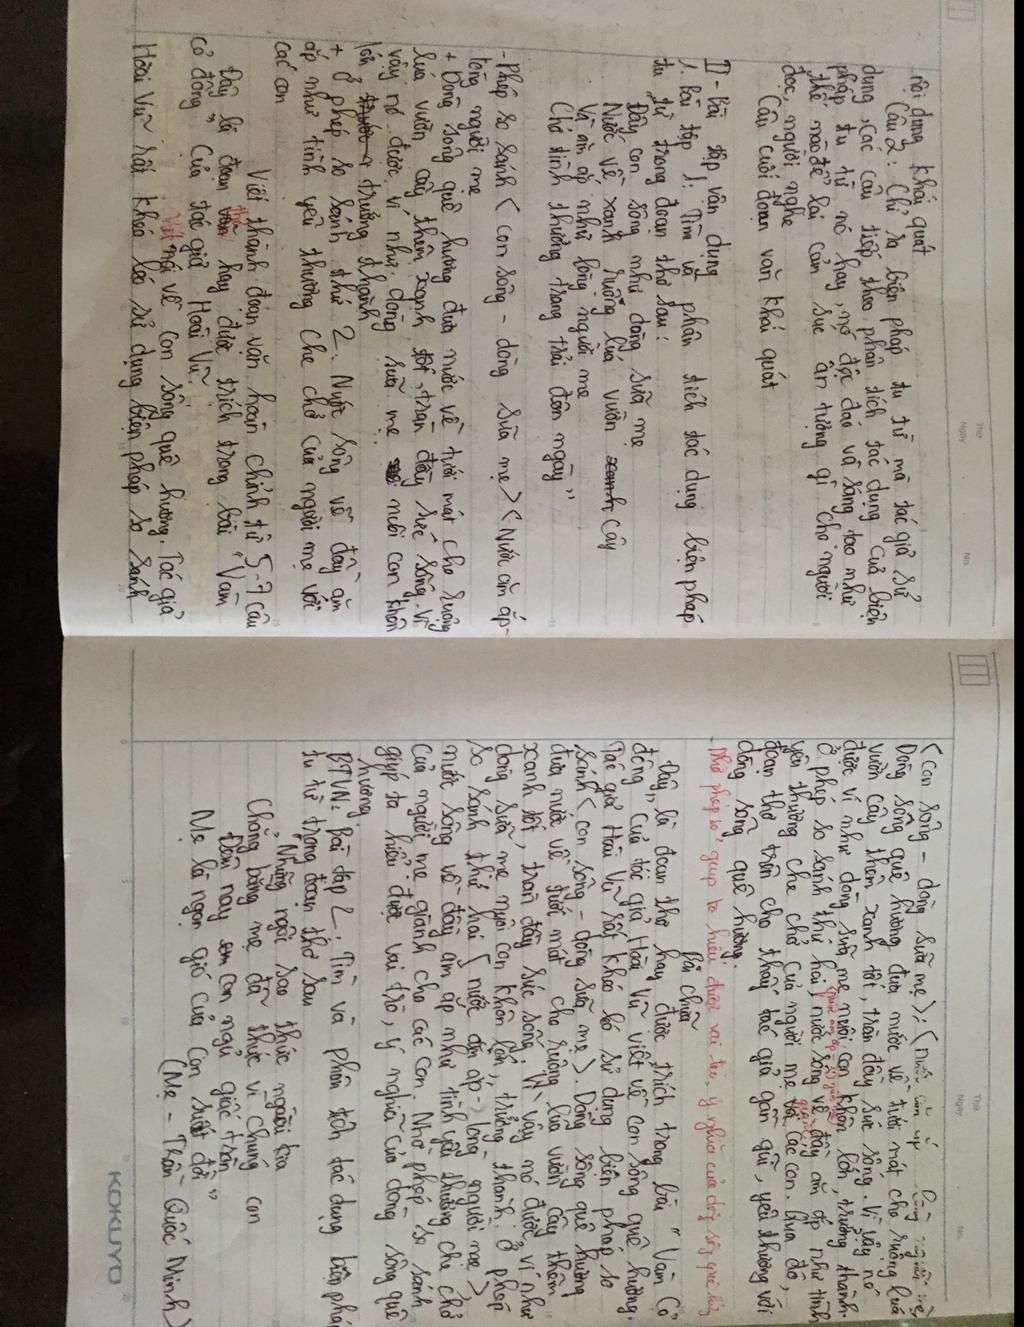 Thứ
Ngày
No.
nội dung khái quát
Câu 2: Chỉ ra biện pháp tu từ mà tác giả sử
dụng, các câu tiếp theo phân tích tác dụng của biện
pháp tu từ nó hay, mớ độc đáo và sáng tạo như
thế nào để lại cảm sục ấn tượng gì cho người
đọc, người nghe
Câu cuối đoạn văn khái quát
II - Bài tập vận dụng
1. Bài tập 1: Tìm và phân tích tác dụng biện pháp
tu từ trong đoạn thơ sau:
Đây con sông như dòng sữa mẹ
Nước về xanh ruộng lúa vườn cây
Và ấm áp như lòng người mẹ
Chở tình thương trang trải đêm ngày"
- Phép so sánh < con sông - dòng sữa mẹ> <Nước ấm áp -
lòng người mẹ
+ Dòng sông quê hương đưa nước về tưới mát cho ruộng
lúa vườn cây thêm xanh tốt, tràn đầy sức sống. Vì
vậy nó được ví như dòng sữa mẹ nuôi con khôn
lớn trưởng thành
+ Ở phép so sánh thứ 2: Nước sông về đầy ấm
áp như tình yêu thương che chở của người mẹ với
các con
Viết thành đoạn văn hoàn chỉnh từ 5-7 câu
Đây là đoạn thơ hay được trích trong bài "Vàm
cỏ đông" của tác giả Hoài Vũ.
Viết về con sông quê hương. Tác giả
Hoài Vũ rất khéo léo sử dụng biện pháp so sánh
Thứ
Ngày
No.
<Con sông - dòng sữa mẹ>; <nước ấm áp - lòng người mẹ>
Dòng sông quê hương đưa nước về tưới mát cho ruộng lúa
vườn cây thêm xanh tốt, tràn đầy sức sống. Vì vậy nó
được ví như dòng sữa mẹ nuôi con khôn lớn, trưởng thành.
Ở phép so sánh thứ hai, nước sông về đầy ấm áp như tình
yêu thương che chở của người mẹ và các con. Qua đó,
đoạn thơ trên cho thấy tác giả gần gũi, yêu thương với
dòng sông quê hương.
- Nhờ phép so giúp ta hiểu được vai trò, ý nghĩa của dòng sông quê hương
Bài chữa
Đây là đoạn thơ hay được trích trong bài "Vàm Cỏ
đông" của tác giả Hoài Vũ viết về con sông quê hương.
Tác giả Hoài Vũ rất khéo léo sử dụng biện pháp so
sánh < con sông - dòng sữa mẹ>. Dòng sông quê hương
đưa nước về tưới mát cho ruộng lúa vườn cây thêm
xanh tốt, tràn đầy sức sống. Vì vậy nó được ví như
dòng sữa mẹ nuôi con khôn lớn, trưởng thành. Ở phép
so sánh thứ hai < nước ấm áp - lòng người mẹ>
nước sông về đầy ấm áp như tình yêu thương che chở
của người mẹ giành cho các con. Nhờ phép so sánh
giúp ta hiểu được vai trò, ý nghĩa của dòng sông quê
hương
BTVN: Bài tập 2: Tìm và phân tích tác dụng biện pháp
tu từ trong đoạn thơ sau
"Những ngôi sao thức ngoài kia
Chẳng bằng mẹ đã thức vì chúng con
Đêm nay con ngủ giấc tròn
Mẹ là ngọn gió của con suốt đời"
(Mẹ - Trần Quốc Minh)
KOKUYO